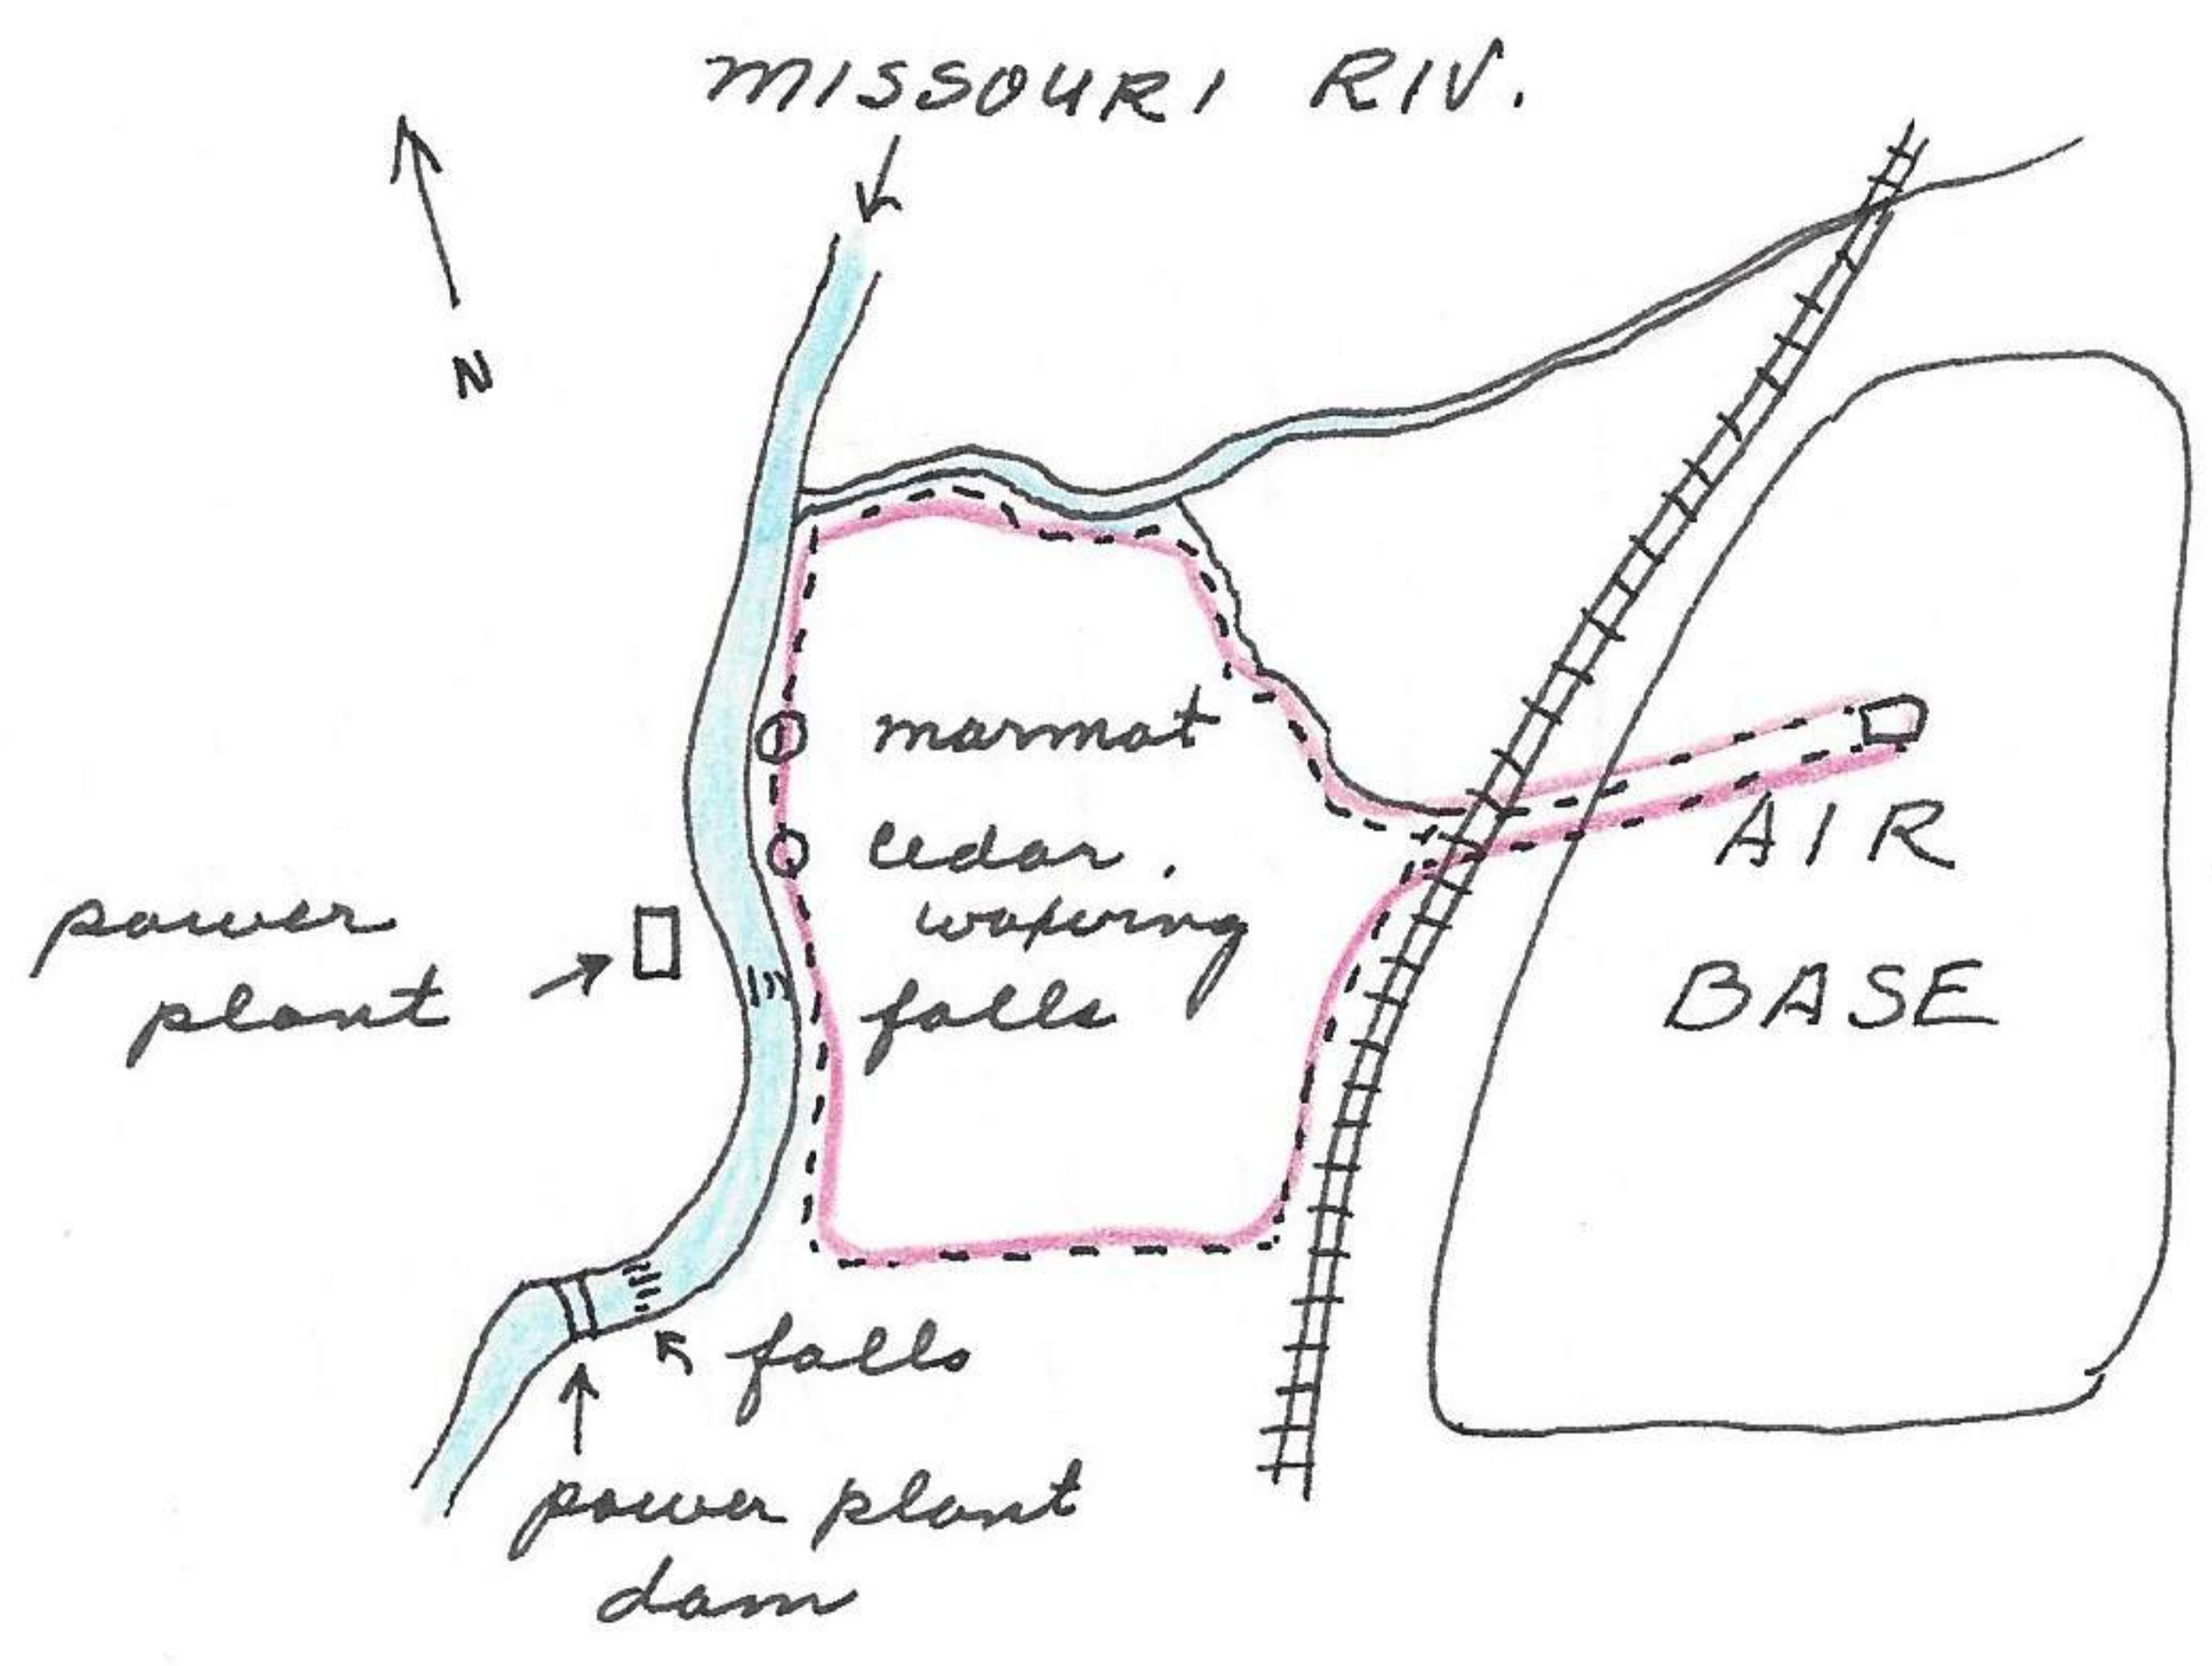 MISSOURI RIV.
N
marmot
cedar
waxwing
falls
power
plant
AIR
BASE
falls
power plant
dam